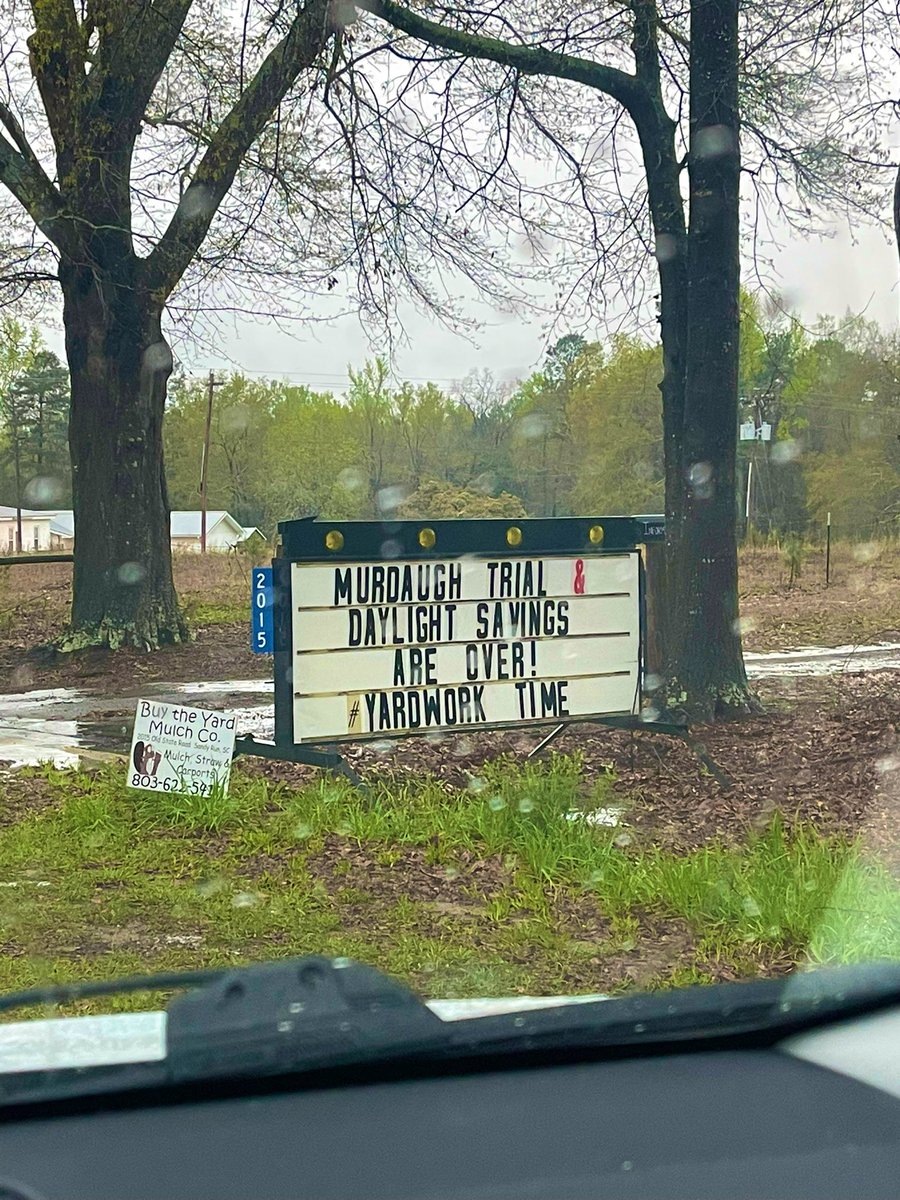 MURDAUGH TRIAL &
DAYLIGHT SAVINGS
ARE OVER!
#YARDWORK TIME
2015
Buy the Yard
Mulch Co.
2015 Old State Road Sandy Run, SC
Mulch Straw &
Carports
803-622-541